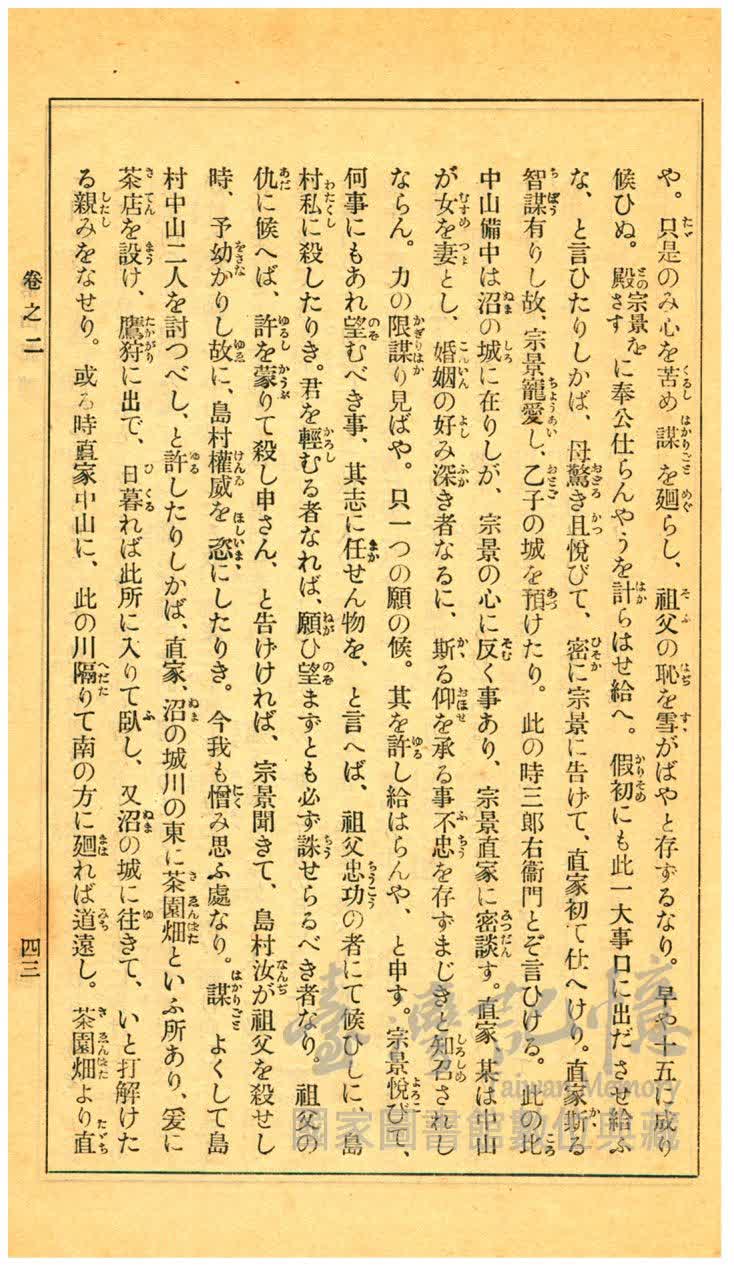 や。只是のみ心を苦め謀を廻らし、祖父の恥を雪がばやと存ずるなり。早や十五に成り
候ひぬ。殿さその宗景をすに奉公仕らんやうを計らはせ給へ。假初にも此一大事口に出ださせ給ふ
な、と言ひたりしかば、母驚き且悅びて、密に宗景に告げて、直家初て仕へけり。直家斯る
智謀有りし故、宗景寵愛し、乙子の城を預けたり。此の時三郎右衞門とぞ言ひける。此の比
中山備中は沼の城に在りしが、宗景の心に反く事あり、宗景直家に密談す。直家、某は中山
が女を妻とし、婚姻の好み深き者なるに、斯る仰を承る事不忠を存ずまじきと知召されし
ならん。力の限謀り見ばや。只一つの願の候。其を許し給はらんや、と申す。宗景悅びて、
何事にもあれ望むべき事、其志に任せん物を、と言へば、祖父忠功の者にて候ひしに、島
村私に殺したりき。君を輕むる者なれば、願ひ望まずとも必ず誅せらるべき者なり。祖父の
仇に候へば、許を蒙りて殺し申さん、と告げければ、宗景聞きて、島村汝が祖父を殺せし
時、予幼かりし故に、島村權威を恣にしたりき。今我も憎み思ふ處なり。謀よくして島
村中山二人を討つべし、と許したりしかば、直家、沼の城川の東に茶園畑といふ所あり、爰に
茶店を設け、鷹狩に出で、日暮れば此所に入りて臥し、又沼の城に往きて、いと打解けた
る親みをなせり。或る時直家中山に、此の川隔りて南の方に廻れば道遠し。茶園畑より直
卷之二
四三
臺灣記憶
Taiwan Memory
國家圖書館數位典藏